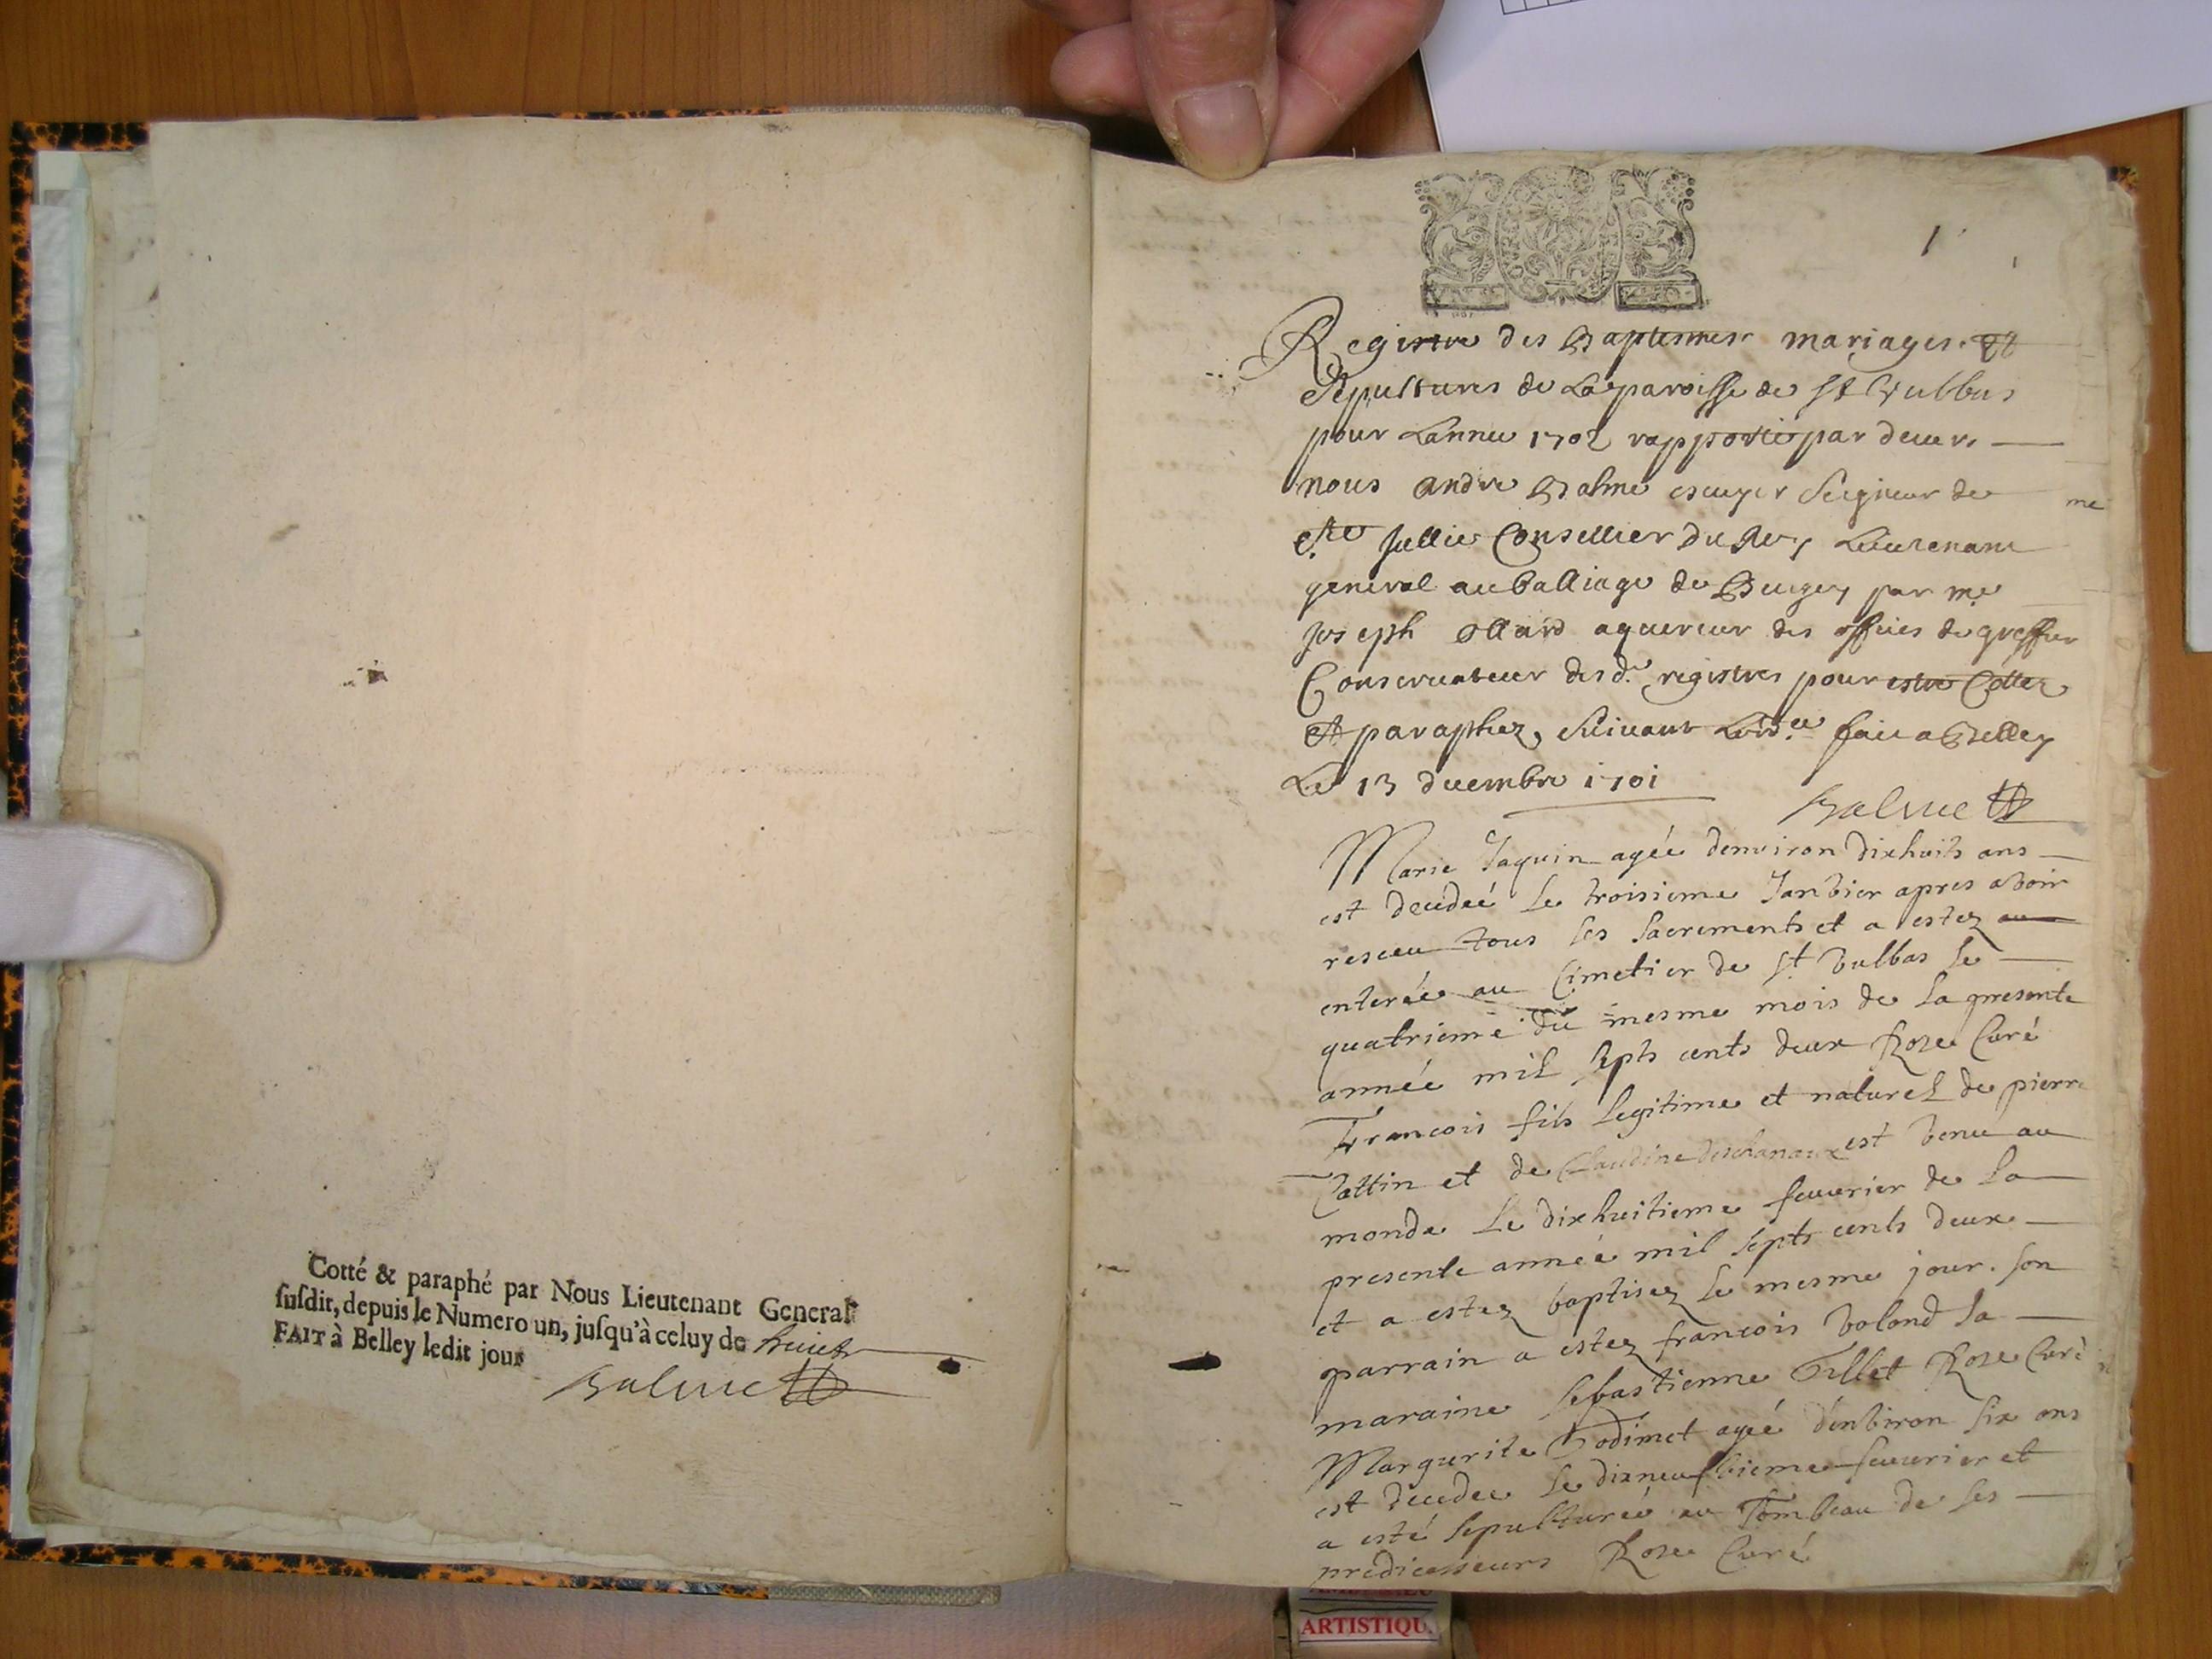 Cotté & paraphé par Nous Lieutenant General
ſuſdit, depuis le Numero un, juſqu'à celuy de huict
FAIT à Belley ledit jour
Balme
1
Registre des Baptesmes mariages et
Sepultures de La paroisse de St Vulbas
pour Lannee 1702 rapporté par deuers
nous andre Balme escuyer Seigneur de
Ste Jullie Consellier du Roy Lieutenant
general au balliage de Beugey par me
Joseph ollard aquereur des offices de greffier
Conseruateur desd. registres pour estre Cottez
Et paraphez, Suiuant Lord.ce faict a Belley
Le 13 decembre 1701
Balme
Marie Jaquin agée denuiron dixhuits ans
est decedeé le troisieme Janvier apres avoir
resceu tous les sacrements et a estez
enterée au Cimetier de St Vulbas le
quatrieme du mesme mois de la presente
année mil septs cents deux Roze Curé
Francois fils legitime et naturel de pierre
Cattin et de Claudine deschanaux est venu au
monde Le dixhuitieme feuurier de la
presente année mil septs cents deux
et a estez baptisez le mesme jour. son
parrain a estez francois Volond la
maraine Sebastienne Tillet Roze Curé
Margurite Bodimet ageé d'environ six ans
est decedee le dixneufvieme feuurier et
a esté sepultureé au Tombeau de ses
predicesseurs Roze Curé
me
ARTISTIQU